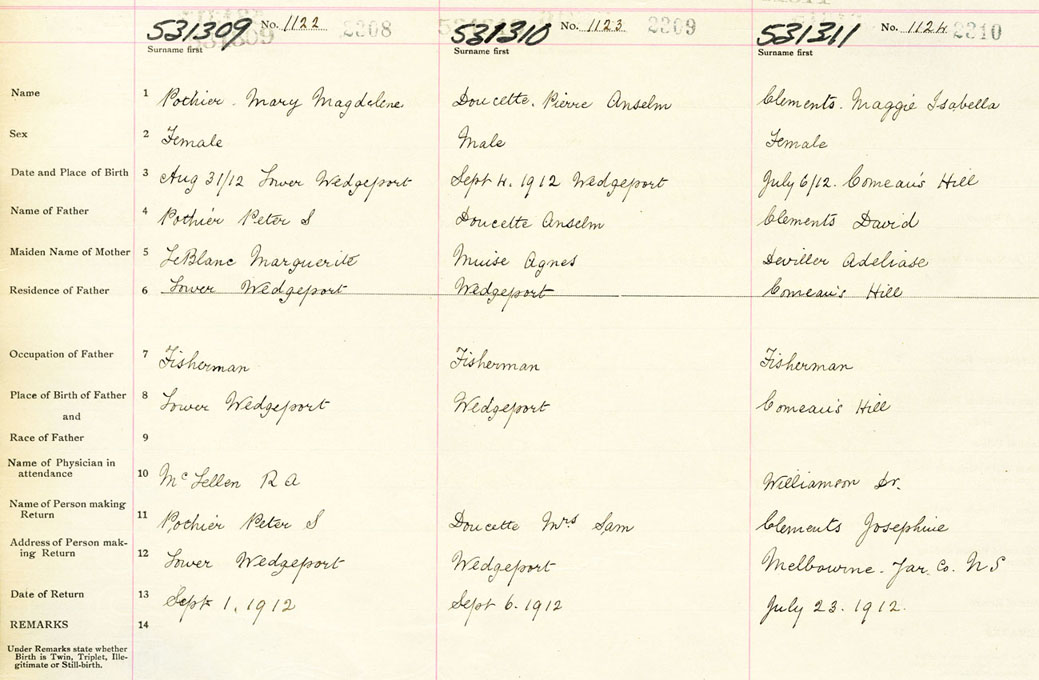 531309 No. 1122 2308 531310 No. 1123 2309 531311 No. 1124 2310
Surname first Surname first Surname first
Name 1 Pothier. Mary Magdelene Doucette. Pierre Anselm Clements. Maggie Isabella
Sex 2 Female Male Female
Date and Place of Birth 3 Aug 31/12 Lower Wedgeport Sept 4. 1912 Wedgeport July 6/12. Comeau's Hill
Name of Father 4 Pothier Peter S Doucette Anselm Clements David
Maiden Name of Mother 5 LeBlanc Marguerite Muise Agnes Deviller Adeliase
Residence of Father 6 Lower Wedgeport Wedgeport Comeau's Hill
Occupation of Father 7 Fisherman Fisherman Fisherman
Place of Birth of Father 8 Lower Wedgeport Wedgeport Comeau's Hill
and
Race of Father 9
Name of Physician in
attendance 10 McLellen R A Williamson Dr.
Name of Person making
Return 11 Pothier Peter S Doucette Mrs Sam Clements Josephine
Address of Person mak-
ing Return 12 Lower Wedgeport Wedgeport Melbourne. Yar. Co. N S
Date of Return 13 Sept 1, 1912 Sept 6. 1912 July 23. 1912.
REMARKS 14
Under Remarks state whether
Birth is Twin, Triplet, Ille-
gitimate or Still-birth.